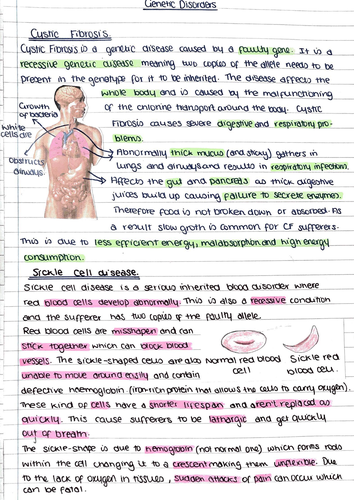 Genetic Disorders
Cystic Fibrosis.
Cystic Fibrosis is a genetic disease caused by a faulty gene. It is a
recessive genetic disease meaning two copies of the allele needs to be
present in the genotype for it to be inherited. The disease affects the
whole body and is caused by the malfunctioning
of the chlorine transport around the body. Cystic
Fibrosis causes severe digestive and respiratory pro-
blems.
Growth
of bacteria
White
cells die
obstructs
airways.
Abnormally thick mucus (and sticky) gathers in
lungs and airways and results in respiratory infections.
Affects the gut and pancreas as thick digestive
juices build up causing failure to secrete enzymes.
Therefore food is not broken down or absorbed. As
a result slow groth is common for CF sufferers.
This is due to less efficient energy, malabsorption and high energy
consumption.
Sickle cell disease.
Sickle cell disease is a serious inherited blood disorder where
red blood cells develop abnormally. This is also a recessive condition
and the sufferer has two copies of the faulty allele.
Red blood cells are misshapen and can
stick together which can block blood
vessels. The sickle-shaped cells are also
unable to move around easily and contain
Normal red blood
cell
Sickle red
blood cell.
defective haemoglobin (iron-rich protein that allows the cells to carry oxygen).
These kind of cells have a shorter lifespan and aren't replaced as
quickly. This cause sufferers to be lathargic and get quickly
out of breath.
The sickle-shape is due to hemoglobin (not normal one) which forms rods
within the cell changing it to a crescent making them unflexible. Due
to the lack of oxygen in tissues, sudden attacks of pain can occur which
can be fatal.